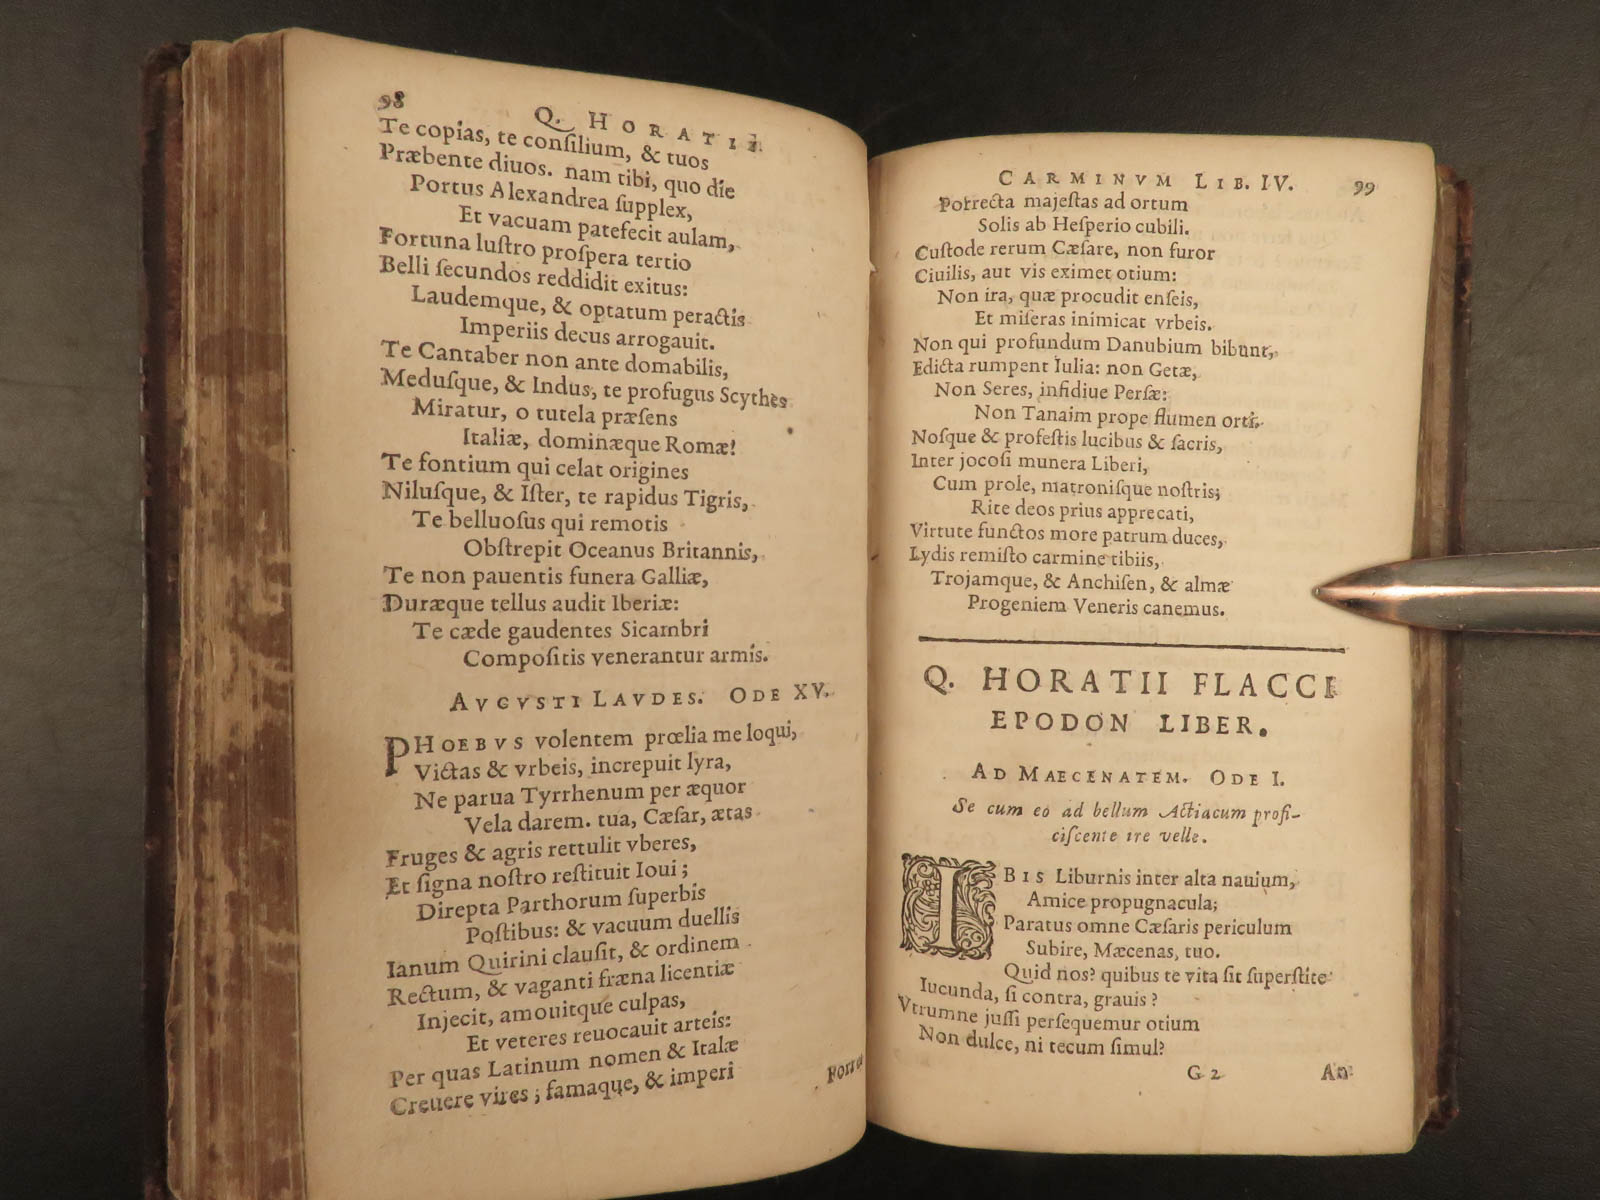 98
Q. HORATII.
Te copias, te conſilium, & tuos
Præbente diuos. nam tibi, quo die
Portus Alexandrea ſupplex,
Et vacuam patefecit aulam,
Fortuna luſtro proſpera tertio
Belli ſecundos reddidit exitus:
Laudemque, & optatum peractis
Imperiis decus arrogauit.
Te Cantaber non ante domabilis,
Meduſque, & Indus, te profugus Scythes
Miratur, o tutela præſens
Italiæ, dominæque Romæ!
Te fontium qui celat origines
Niluſque, & Iſter, te rapidus Tigris,
Te belluoſus qui remotis
Obſtrepit Oceanus Britannis,
Te non pauentis funera Galliæ,
Duræque tellus audit Iberiæ:
Te cæde gaudentes Sicambri
Compoſitis venerantur armis.
AVGVSTI LAVDES. ODE XV.
PHOEBVS volentem prœlia me loqui,
Victas & vrbeis, increpuit lyra,
Ne parua Tyrrhenum per æquor
Vela darem. tua, Cæſar, ætas
Fruges & agris rettulit vberes,
Et ſigna noſtro reſtituit Ioui;
Direpta Parthorum ſuperbis
Poſtibus: & vacuum duellis
Ianum Quirini clauſit, & ordinem
Rectum, & vaganti fræna licentiæ
Injecit, amouitque culpas,
Et veteres reuocauit arteis:
Per quas Latinum nomen & Italæ
Creuere vires; famaque, & imperi
CARMINVM LIB. IV. 99
Porrecta majeſtas ad ortum
Solis ab Heſperio cubili.
Cuſtode rerum Cæſare, non furor
Ciuilis, aut vis eximet otium:
Non ira, quæ procudit enſeis,
Et miſeras inimicat vrbeis.
Non qui profundum Danubium bibunt,
Edicta rumpent Iulia: non Getæ,
Non Seres, infidiue Perſæ:
Non Tanaim prope flumen orti.
Noſque & profeſtis lucibus & ſacris,
Inter jocoſi munera Liberi,
Cum prole, matroniſque noſtris;
Rite deos prius apprecati,
Virtute functos more patrum duces,
Lydis remiſto carmine tibiis,
Trojamque, & Anchiſen, & almæ
Progeniem Veneris canemus.
Q. HORATII FLACCI
EPODON LIBER.
AD MAECENATEM. ODE I.
Se cum eo ad bellum Actiacum profi-
ciſcente ire velle.
IBIS Liburnis inter alta nauium,
Amice propugnacula;
Paratus omne Cæſaris periculum
Subire, Mæcenas, tuo.
Quid nos? quibus te vita ſit ſuperſtite
Iucunda, ſi contra, grauis?
Vtrumne juſſi perſequemur otium
Non dulce, ni tecum ſimul?
G 2 An